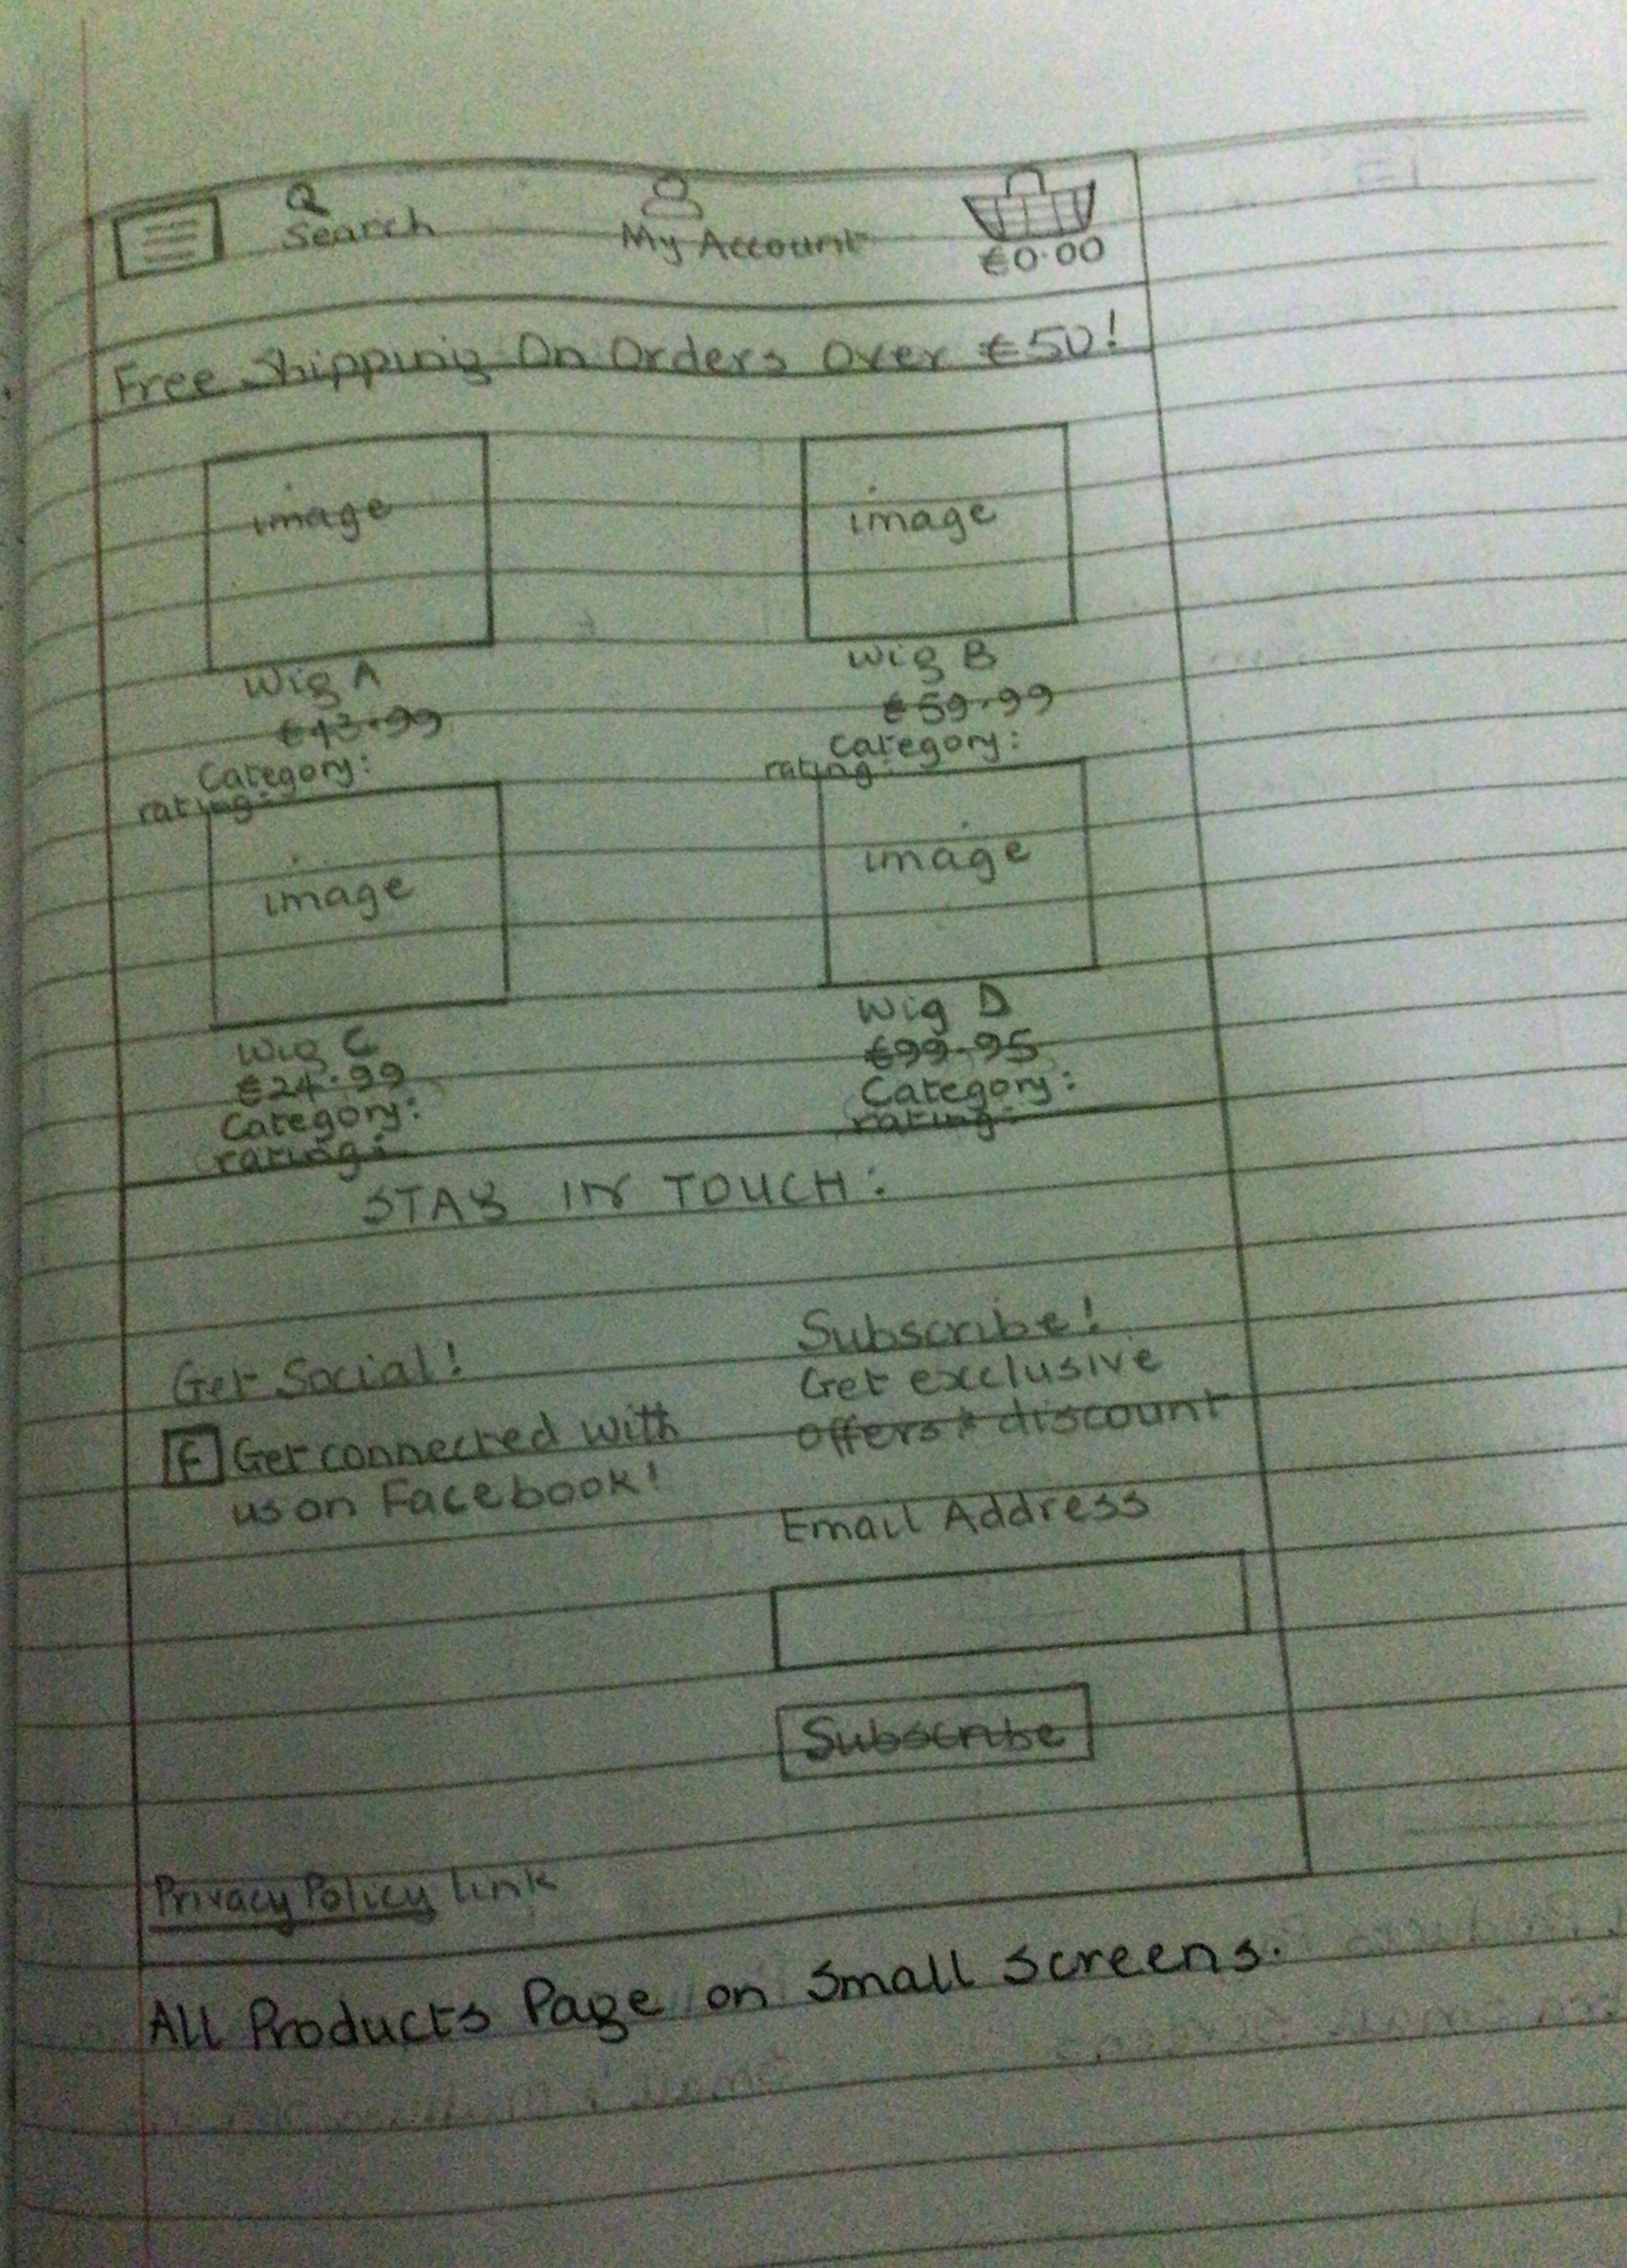 Search
My Account
€0.00
Free Shipping On Orders Over €50!
image
image
Wig A
Wig B
€43.99
€59.99
Category:
Category:
rating:
rating:
image
image
Wig C
Wig D
€24.99
€99.95
Category:
Category:
rating:
rating:
STAY IN TOUCH:
Get Social!
F Get connected with
us on Facebook!
Subscribe!
Get exclusive
offers & discount
Email Address
Subscribe
Privacy Policy link
All Products Page on Small Screens.